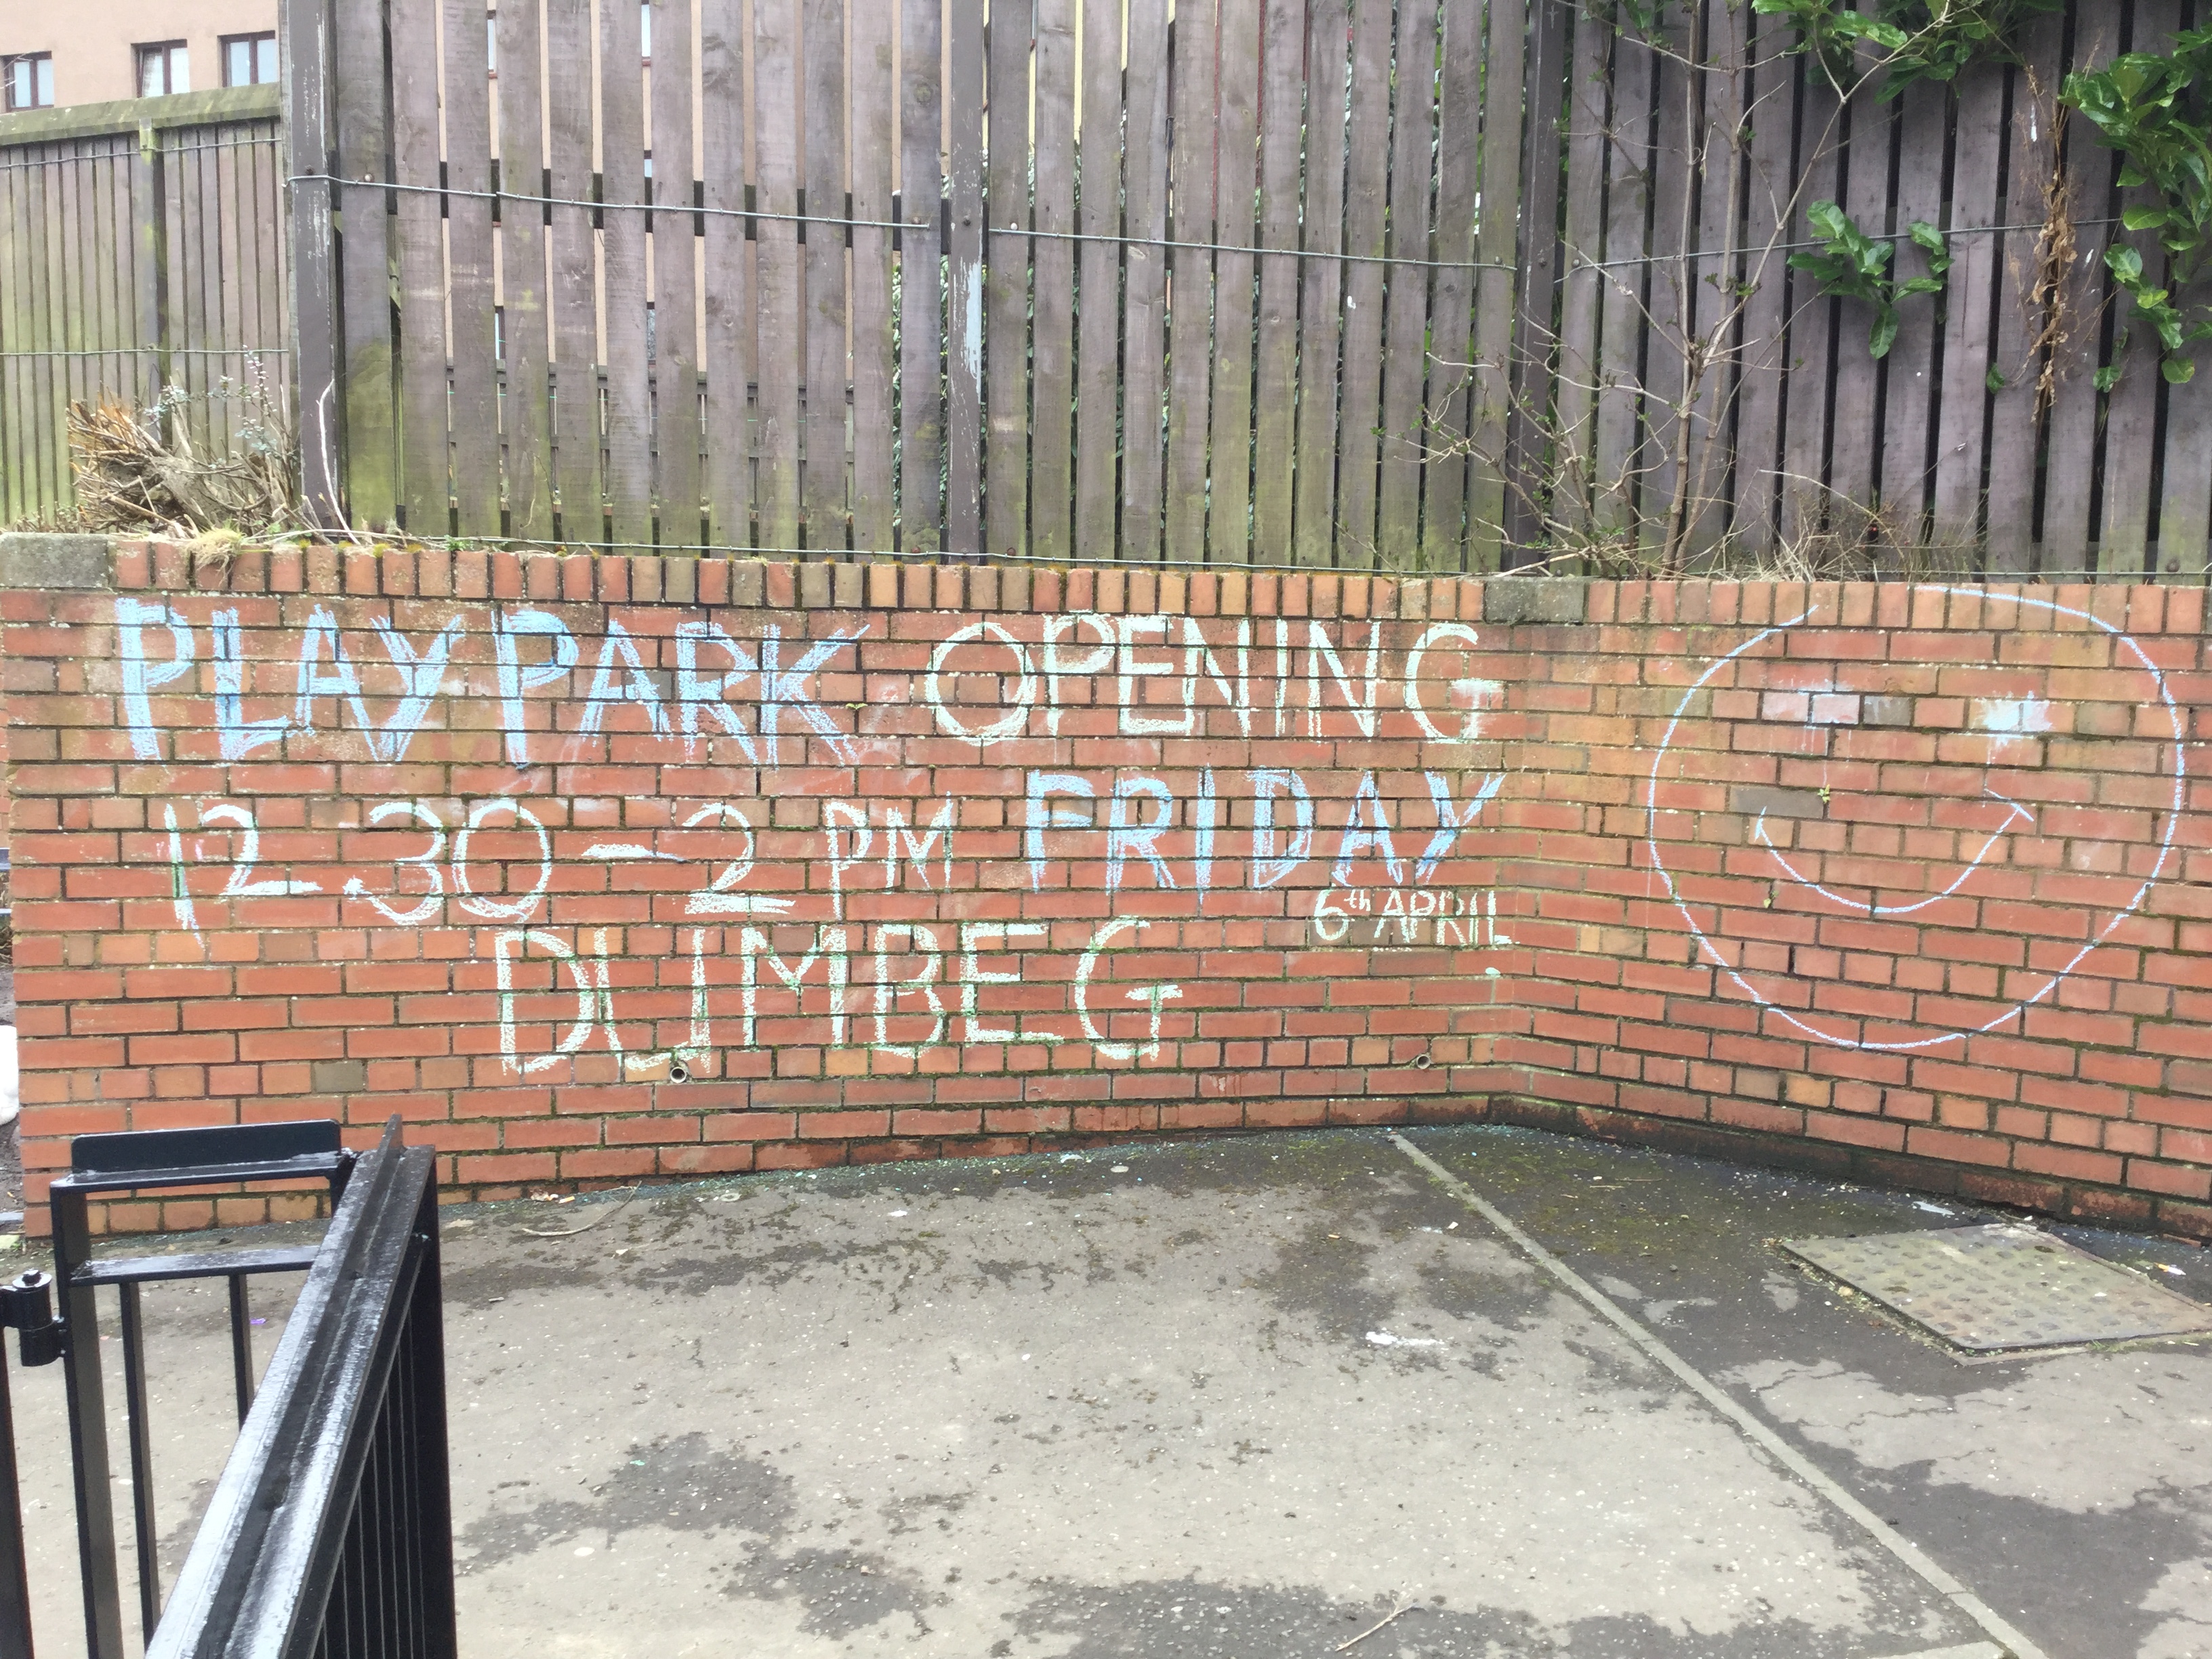 PLAY PARK OPENING
12.30-2 PM FRIDAY
6th APRIL
DUMBEG